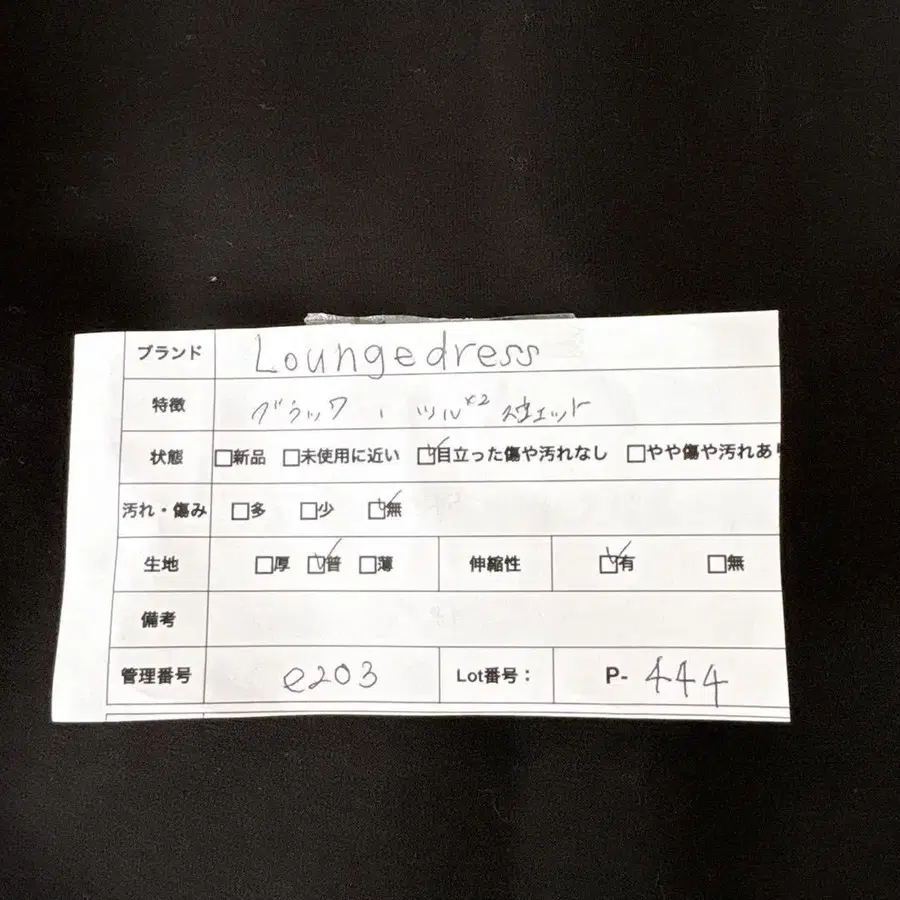 ブランド Loungedress
特徴 ブラック、ツル×2
状態 □新品 □未使用に近い ☑目立った傷や汚れなし □やや傷や汚れあり
汚れ・傷み □多 □少 ☑無
生地 □厚 ☑普 □薄 伸縮性 ☑有 □無
備考
管理番号 e203 Lot番号： P- 444